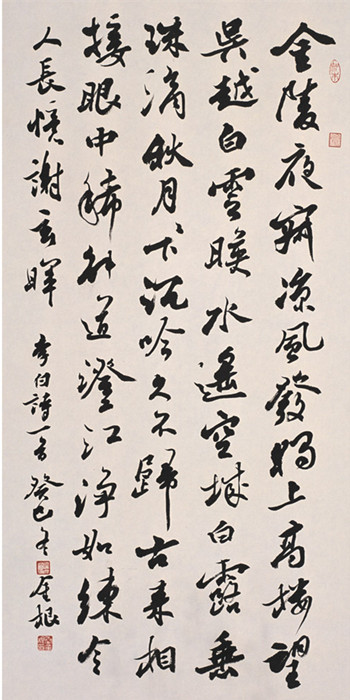 金陵夜寂涼風發獨上高樓望
吳越白雲暎水遙空城白露垂
珠滴秋月〻下沉吟久不歸古来相
接眼中稀解道澄江淨如練令
人長憶謝玄暉 李白詩一首 癸巳冬 金根